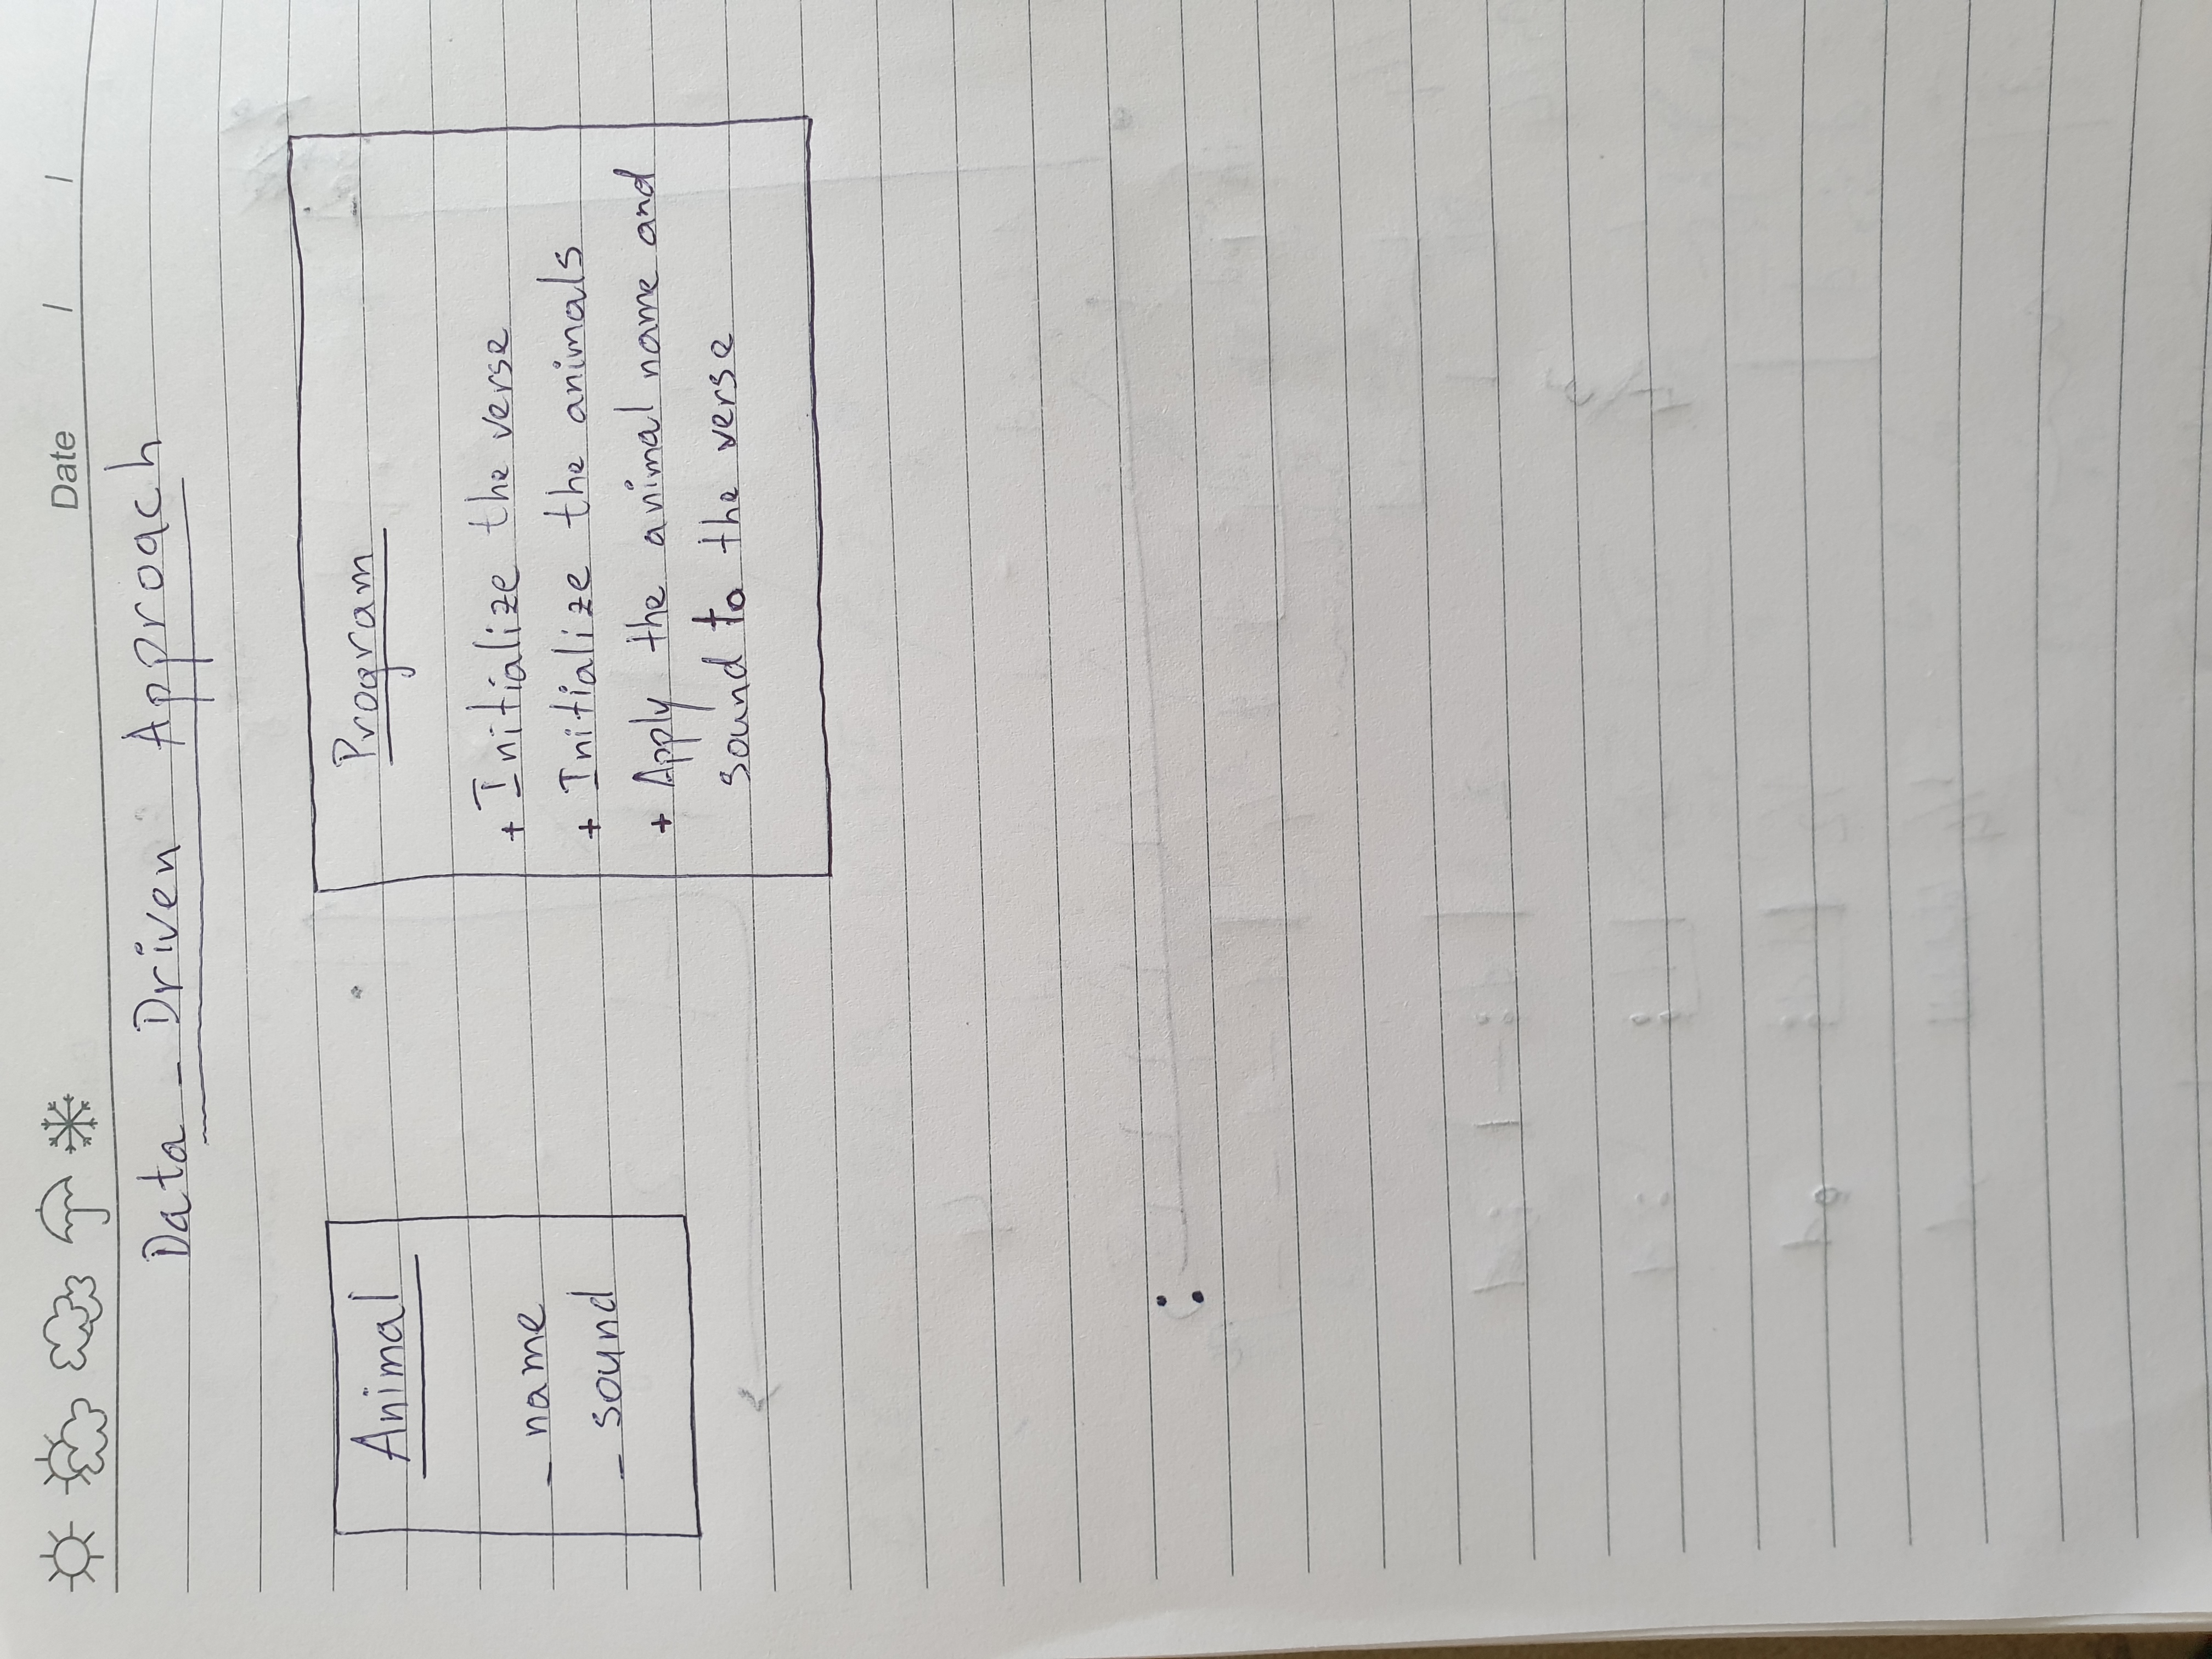 Date / /
Data - Driven Approach
Animal
- name
- sound
Program
+ Initialize the verse
+ Initialize the animals
+ Apply the animal name and
sound to the verse
: